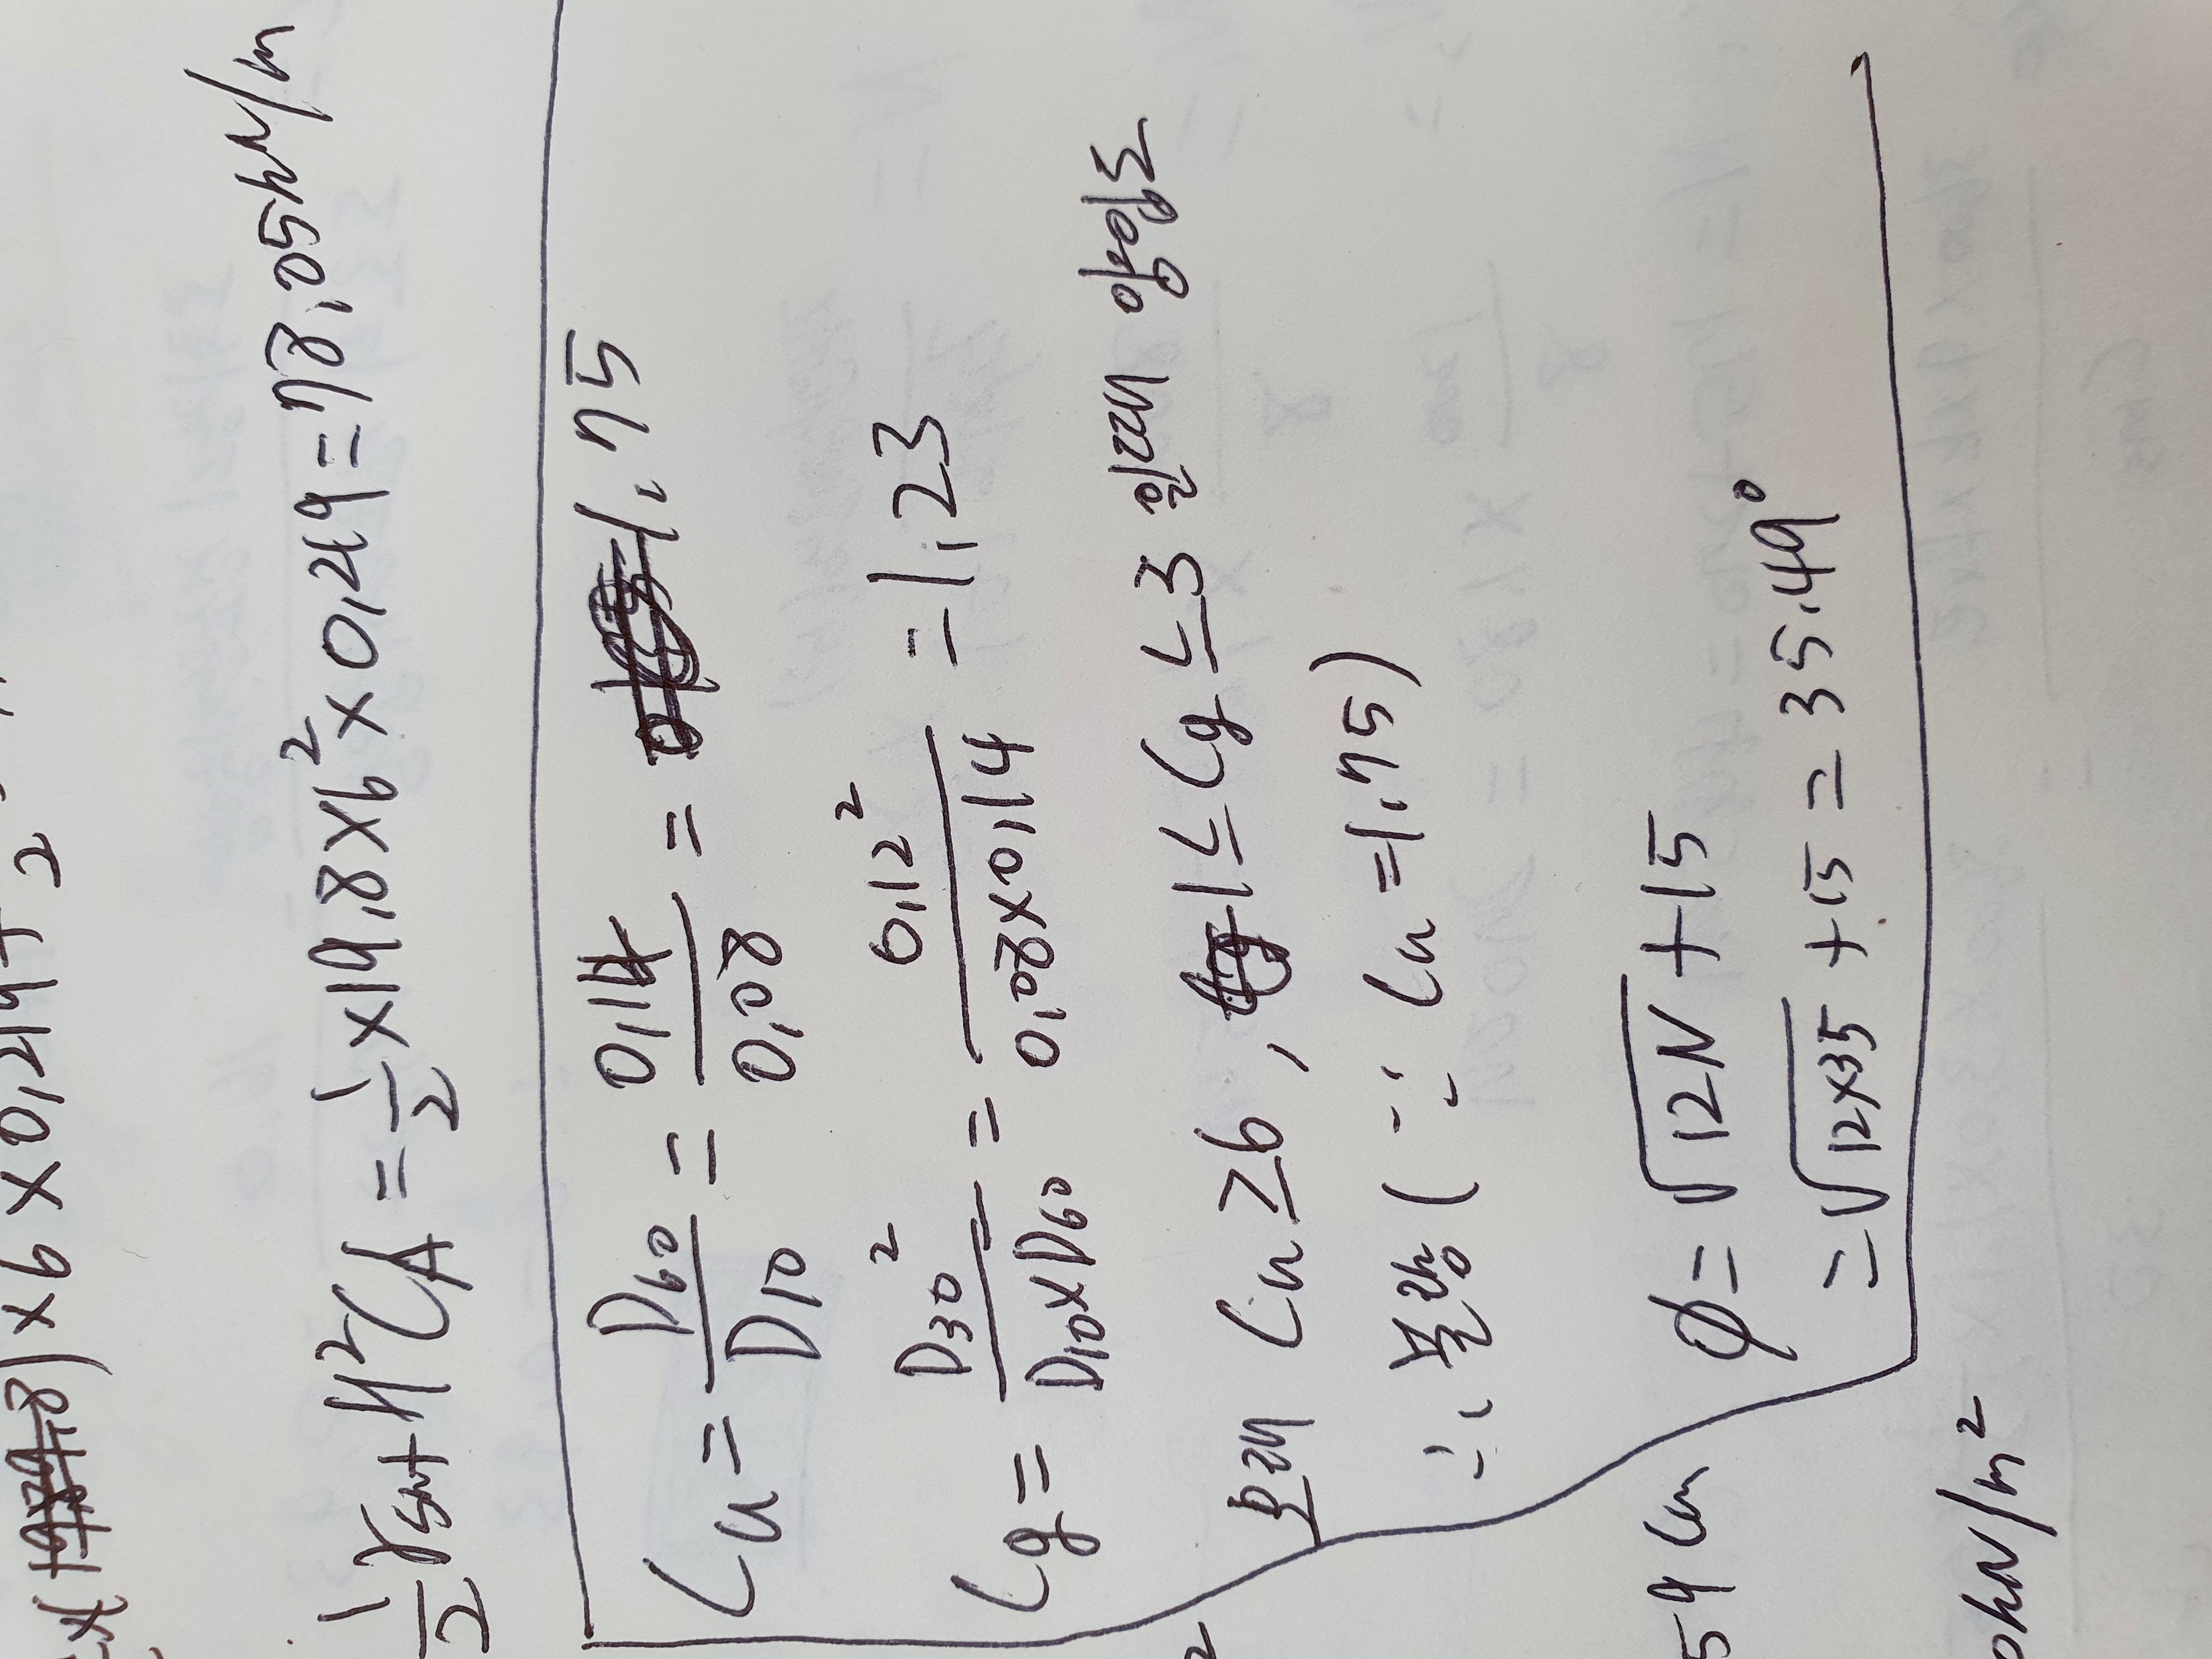 ) x 6 x 0,219 +
½ γsat H² CA = ½ x 19,8 x 6² x 0,219 = 78,05 kN/m
Cu = D60 / D10 = 0,14 / 0,08 = 1,75
Cg = D30² / D10 x D60 = 0,12² / 0,08 x 0,14 = 1,23
모래 Cu ≥ 6, 1 ≤ Cg ≤ 3 일때 양입도
∴ 불량 (∵ Cu = 1,75)
Ø = √12N + 15
= √12x35 + 15 = 35.49°
59 cm
0kN/m²